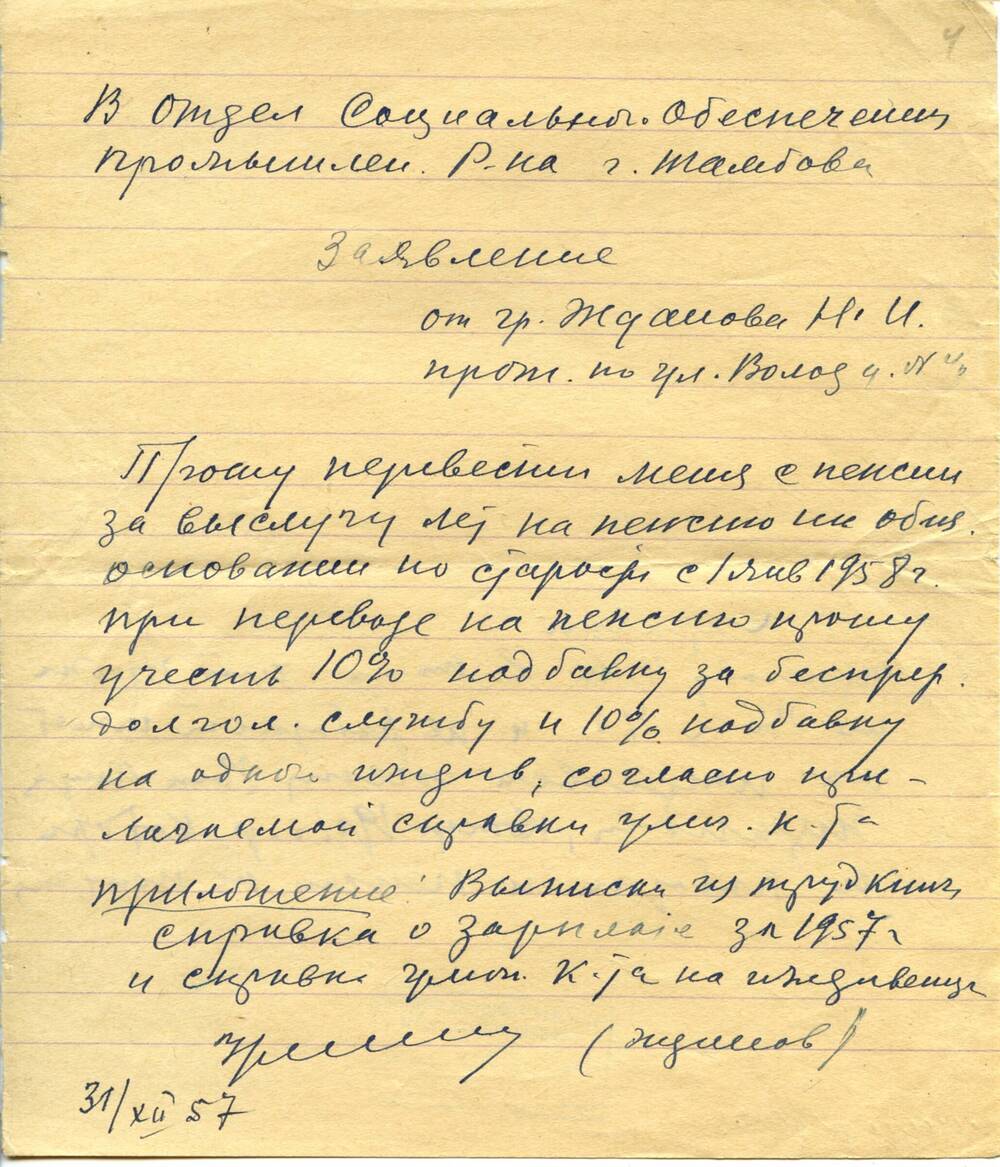 4
В отдел Социально. Обеспечения
промышлен. Р-на г. Тамбова
Заявление
от гр. Жданова Н. И.
прож. по ул. Волод
Прошу перевести меня с пенсии
за выслугу лет на пенсию на общ.
основании по старости с 1 янв 1958 г.
при переводе на пенсию прошу
учесть 10% надбавку за беспрер.
долгол. службу и 10% надбавку
на одного иждив, согласно при-
лагаемой справки улич. к-та
приложение: Выписки из труд книж
справка о зарплате за 1957 г
и справка улич. К-та на иждивенца
(Жданов)
31/XII 57